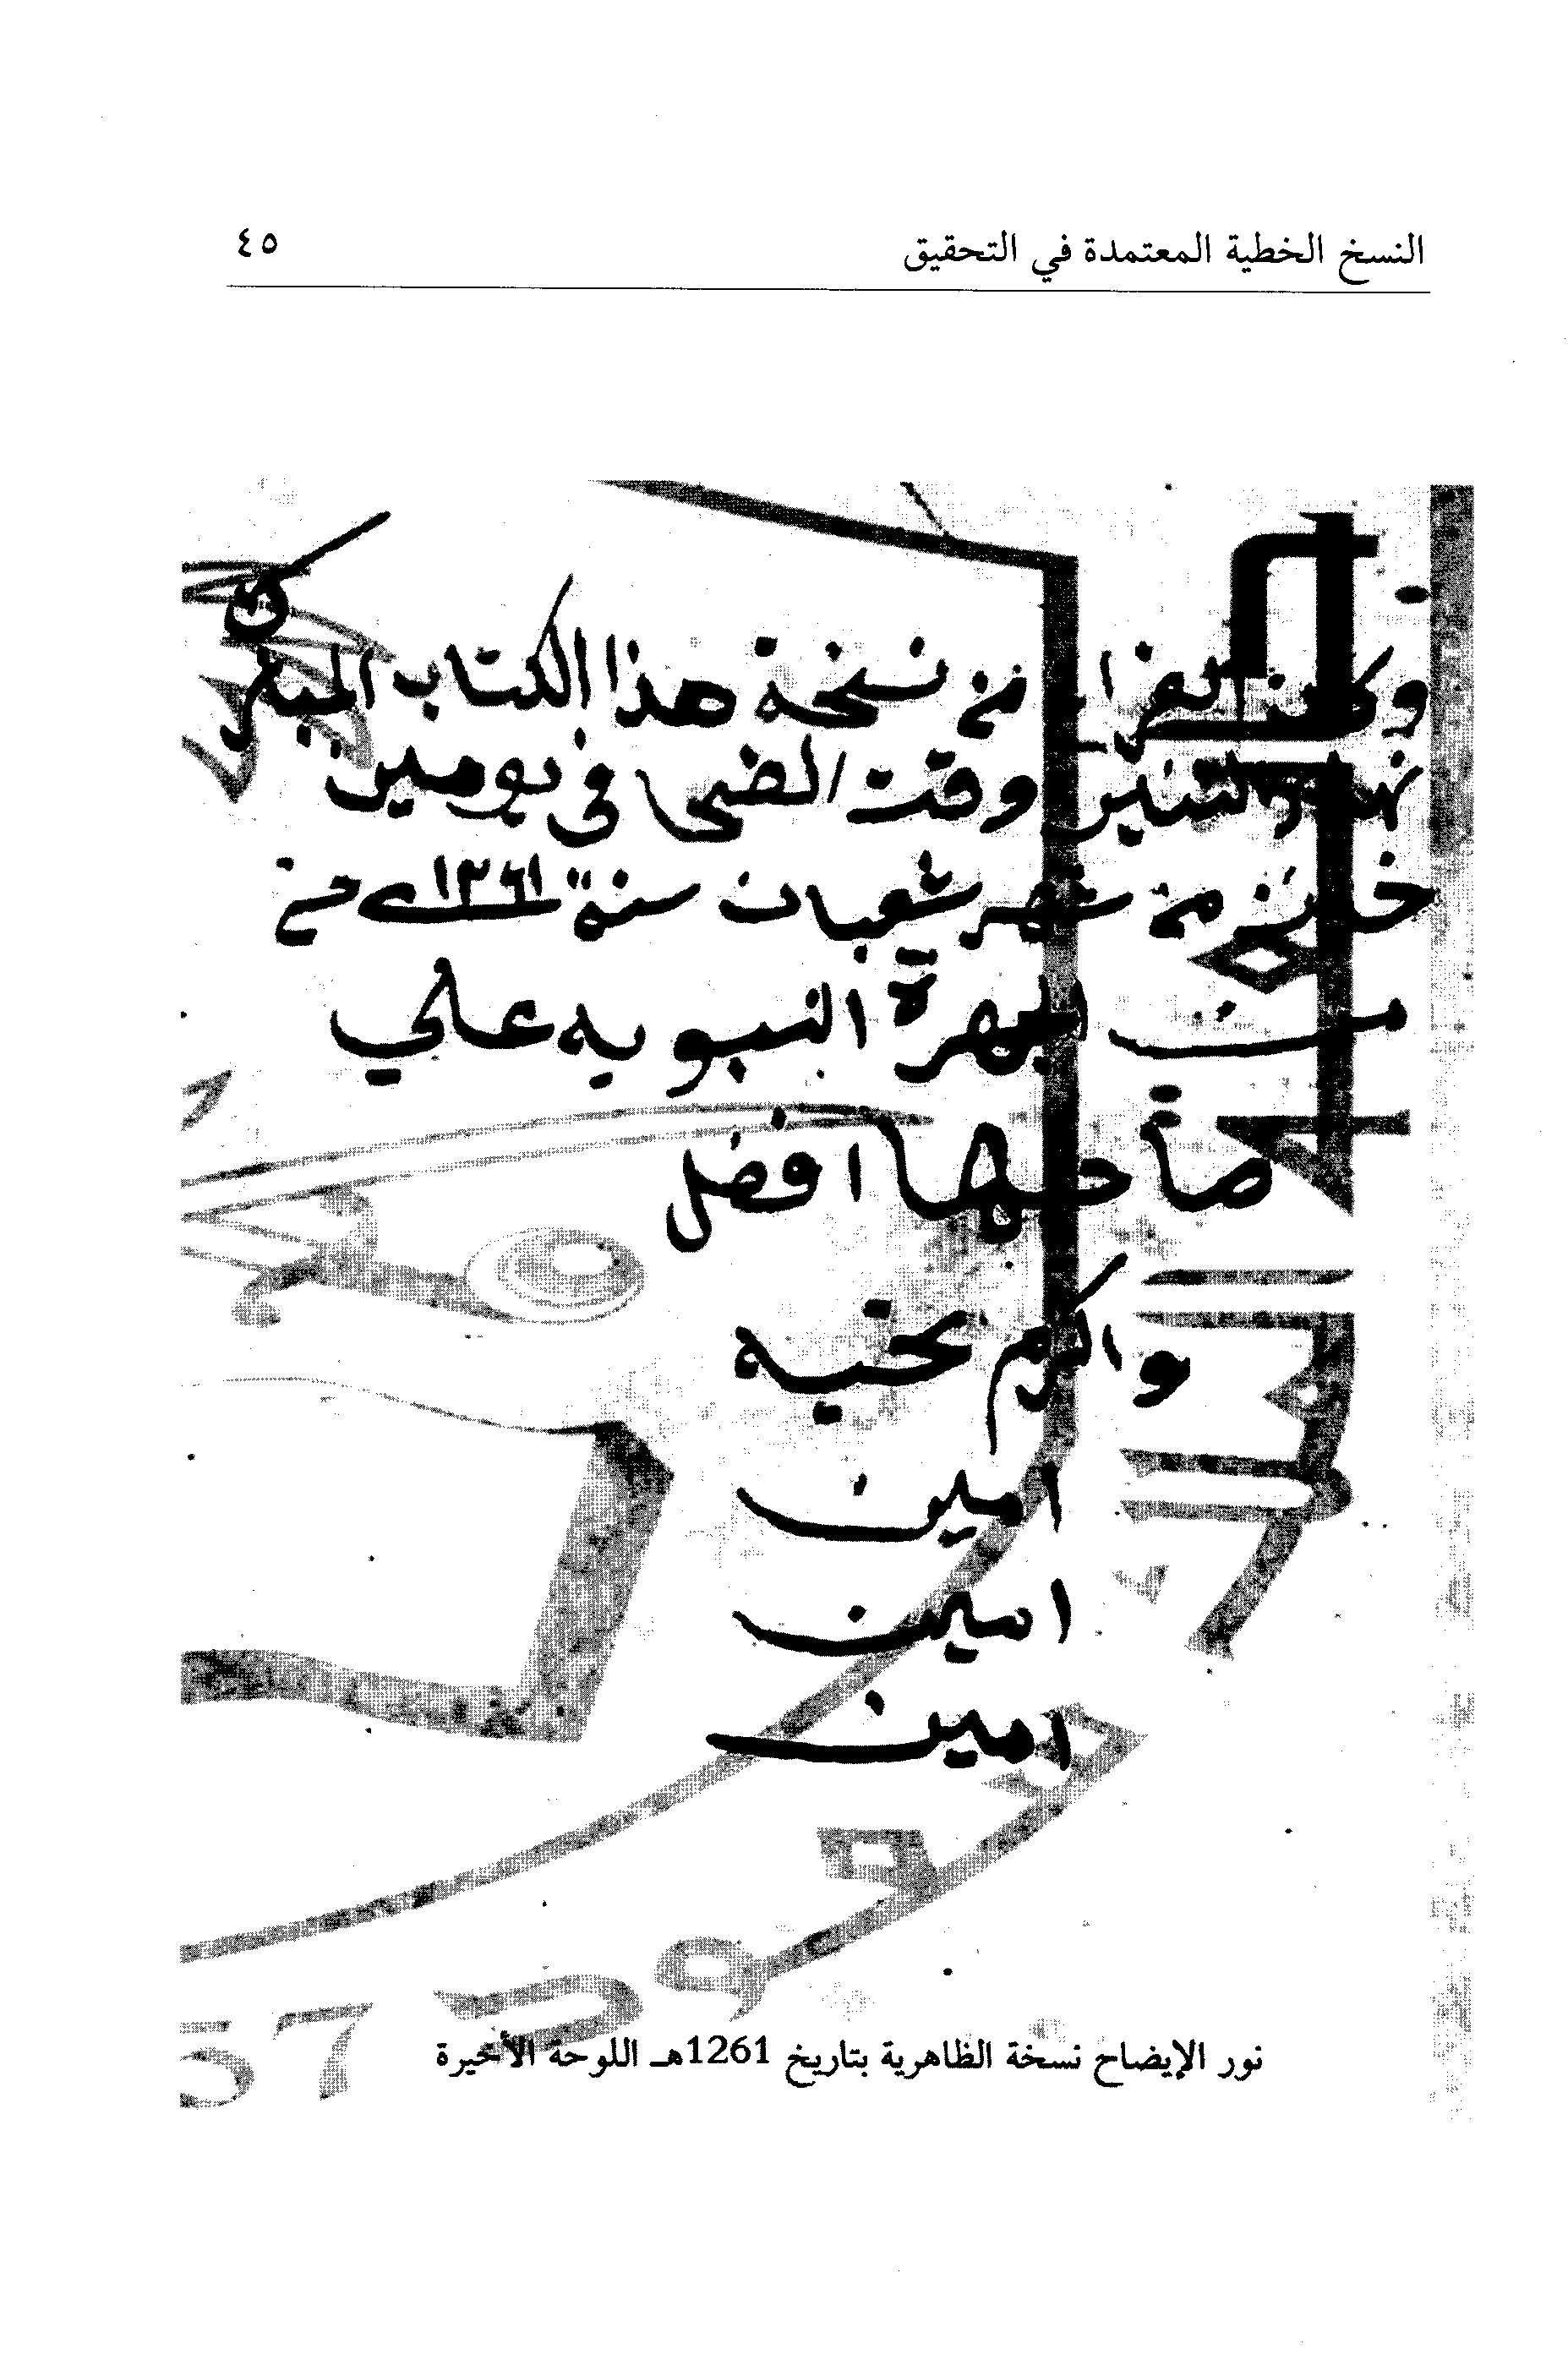 النسخ الخطية المعتمدة في التحقيق
٤٥
وكان الفراغ من نسخة هذا الكتاب المبارك
نهار وقت الضحى في يومين
من شهر شعبان سنة ١٢٦١
من الهجرة النبويه علي
صاحبها افضل
واكرم تحيه
امين
امين
امين
نور الإيضاح نسخة الظاهرية بتاريخ 1261هـ اللوحة الأخيرة
57